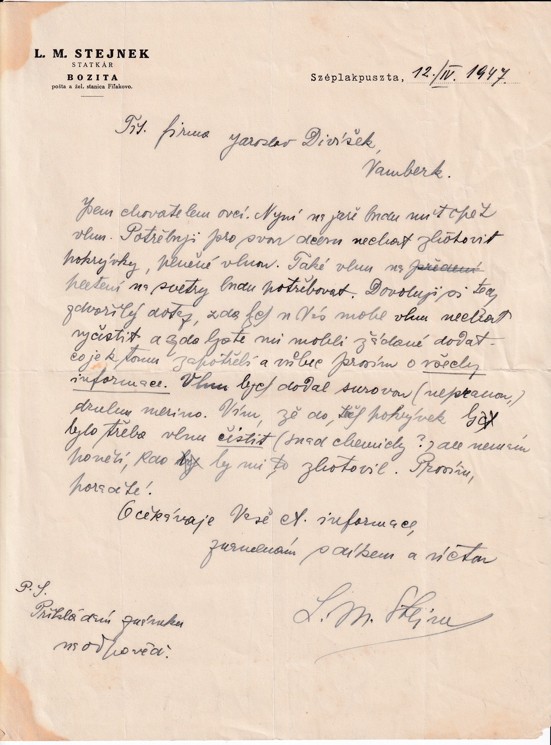 L. M. STEJNEK
STATKÁR
BOZITA
pošta a žel. stanica Fiľakovo.
Széplakpuszta, 12./IV. 1947.
Tit. firma Jaroslav Divíšek,
Vamberk.
Jsem chovatelem ovcí. Nyní na jaře budu mít opět
vlnu. Potřebuji pro svou dceru nechat zhotovit
pokrývky, plněné vlnou. Také vlnu na předení
pletení na svetry budu potřebovat. Dovoluji si tedy
zdvořilý dotaz, zda bych u Vás mohl vlnu nechat
vyčistit a zda byste mi mohli žádané dodat
co je k tomu zapotřebí a vůbec prosím o všechny
informace. Vlnu bych dodal surovou (nepranou,)
druhu merino. Vím, že do pokrývek
bylo třeba vlnu čistit (snad chemicky?) ale nemám
ponětí, kdo by mi to zhotovil. Prosím,
poraďte!
Očekávaje Vaše ct. informace,
znamenám s díkem a úctou
L. M. Stejn
P. S.
Přikládám známku
na odpověď.